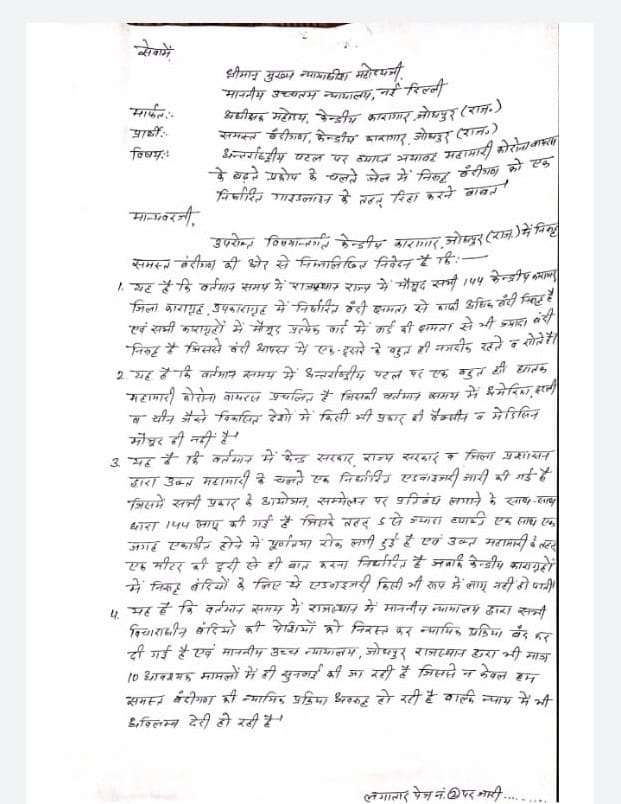 सेवामें,
श्रीमान् मुख्य न्यायाधीश महोदयजी,
माननीय उच्चतम न्यायालय, नई दिल्ली
मार्फत:- अधीक्षक महोदय, केन्द्रीय कारागार, जोधपुर (राज॰)
प्रार्थी:- समस्त बंदीगण, केन्द्रीय कारागार, जोधपुर (राज॰)
विषय:- अन्तर्राष्ट्रीय पटल पर व्याप्त भयावह महामारी कोरोना वायरस
के बढ़ते प्रकोप के चलते जेल में निरुद्ध बंदीगण को एक
निर्धारित गाइडलाइन के तहत् रिहा करने बाबत्
मान्यवरजी,
उपरोक्त विषयान्तर्गत केन्द्रीय कारागार, जोधपुर (राज.) में निरुद्ध
समस्त बंदीगण की ओर से निम्नलिखित निवेदन है कि:-
1. यह है कि वर्तमान समय में राजस्थान राज्य में मौजूद सभी 144 केन्द्रीय कारागृह,
जिला कारागृह, उपकारागृह में निर्धारित बंदी क्षमता से काफी अधिक बंदी निरुद्ध है
एवं सभी कारागृहों में मौजूद प्रत्येक वार्ड में वार्ड की क्षमता से भी ज्यादा बंदी
निरुद्ध है जिससे बंदी आपस में एक-दूसरे के बहुत ही नजदीक रहते व सोते है।
2. यह है कि वर्तमान समय में अन्तर्राष्ट्रीय पटल पर एक बहुत ही घातक
महामारी कोरोना वायरस प्रचलित है जिसकी वर्तमान समय में अमेरिका, इटली
व चीन जैसे विकसित देशो में किसी भी प्रकार की वैक्सीन व मेडिसिन
मौजूद ही नहीं है।
3. यह है कि वर्तमान में केन्द्र सरकार, राज्य सरकार व जिला प्रशासन
द्वारा उक्त महामारी के चलते एक निर्धारित एडवाइजरी जारी की गई है
जिसमें सभी प्रकार के आयोजन, सम्मेलन पर प्रतिबंध लगाने के साथ-साथ
धारा 144 लागू की गई है जिसके तहत् 5 से ज्यादा व्यक्ति एक साथ एक
जगह एकत्रित होने में पूर्णतया रोक लगी हुई है एवं उक्त महामारी के तहत्
एक मीटर की दूरी से ही बात करना निर्धारित है जबकि केन्द्रीय कारागृहों
में निरुद्ध बंदियों के लिए ये एडवाइजरी किसी भी रूप में लागू नहीं हो पाती।
4. यह है कि वर्तमान समय में राजस्थान में माननीय न्यायालय द्वारा सभी
विचाराधीन बंदियों की पेशियों को निरस्त कर न्यायिक प्रक्रिया बंद कर
दी गई है एवं माननीय उच्च न्यायालय, जोधपुर राजस्थान द्वारा भी मात्र
10 आवश्यक मामलों में ही सुनवाई की जा रही है जिससे न केवल हम
समस्त बंदीगण की न्यायिक प्रक्रिया अवरुद्ध हो रही है बल्कि न्याय में भी
अविलम्ब देरी हो रही है।
लगातार पेज नं. ② पर जारी........